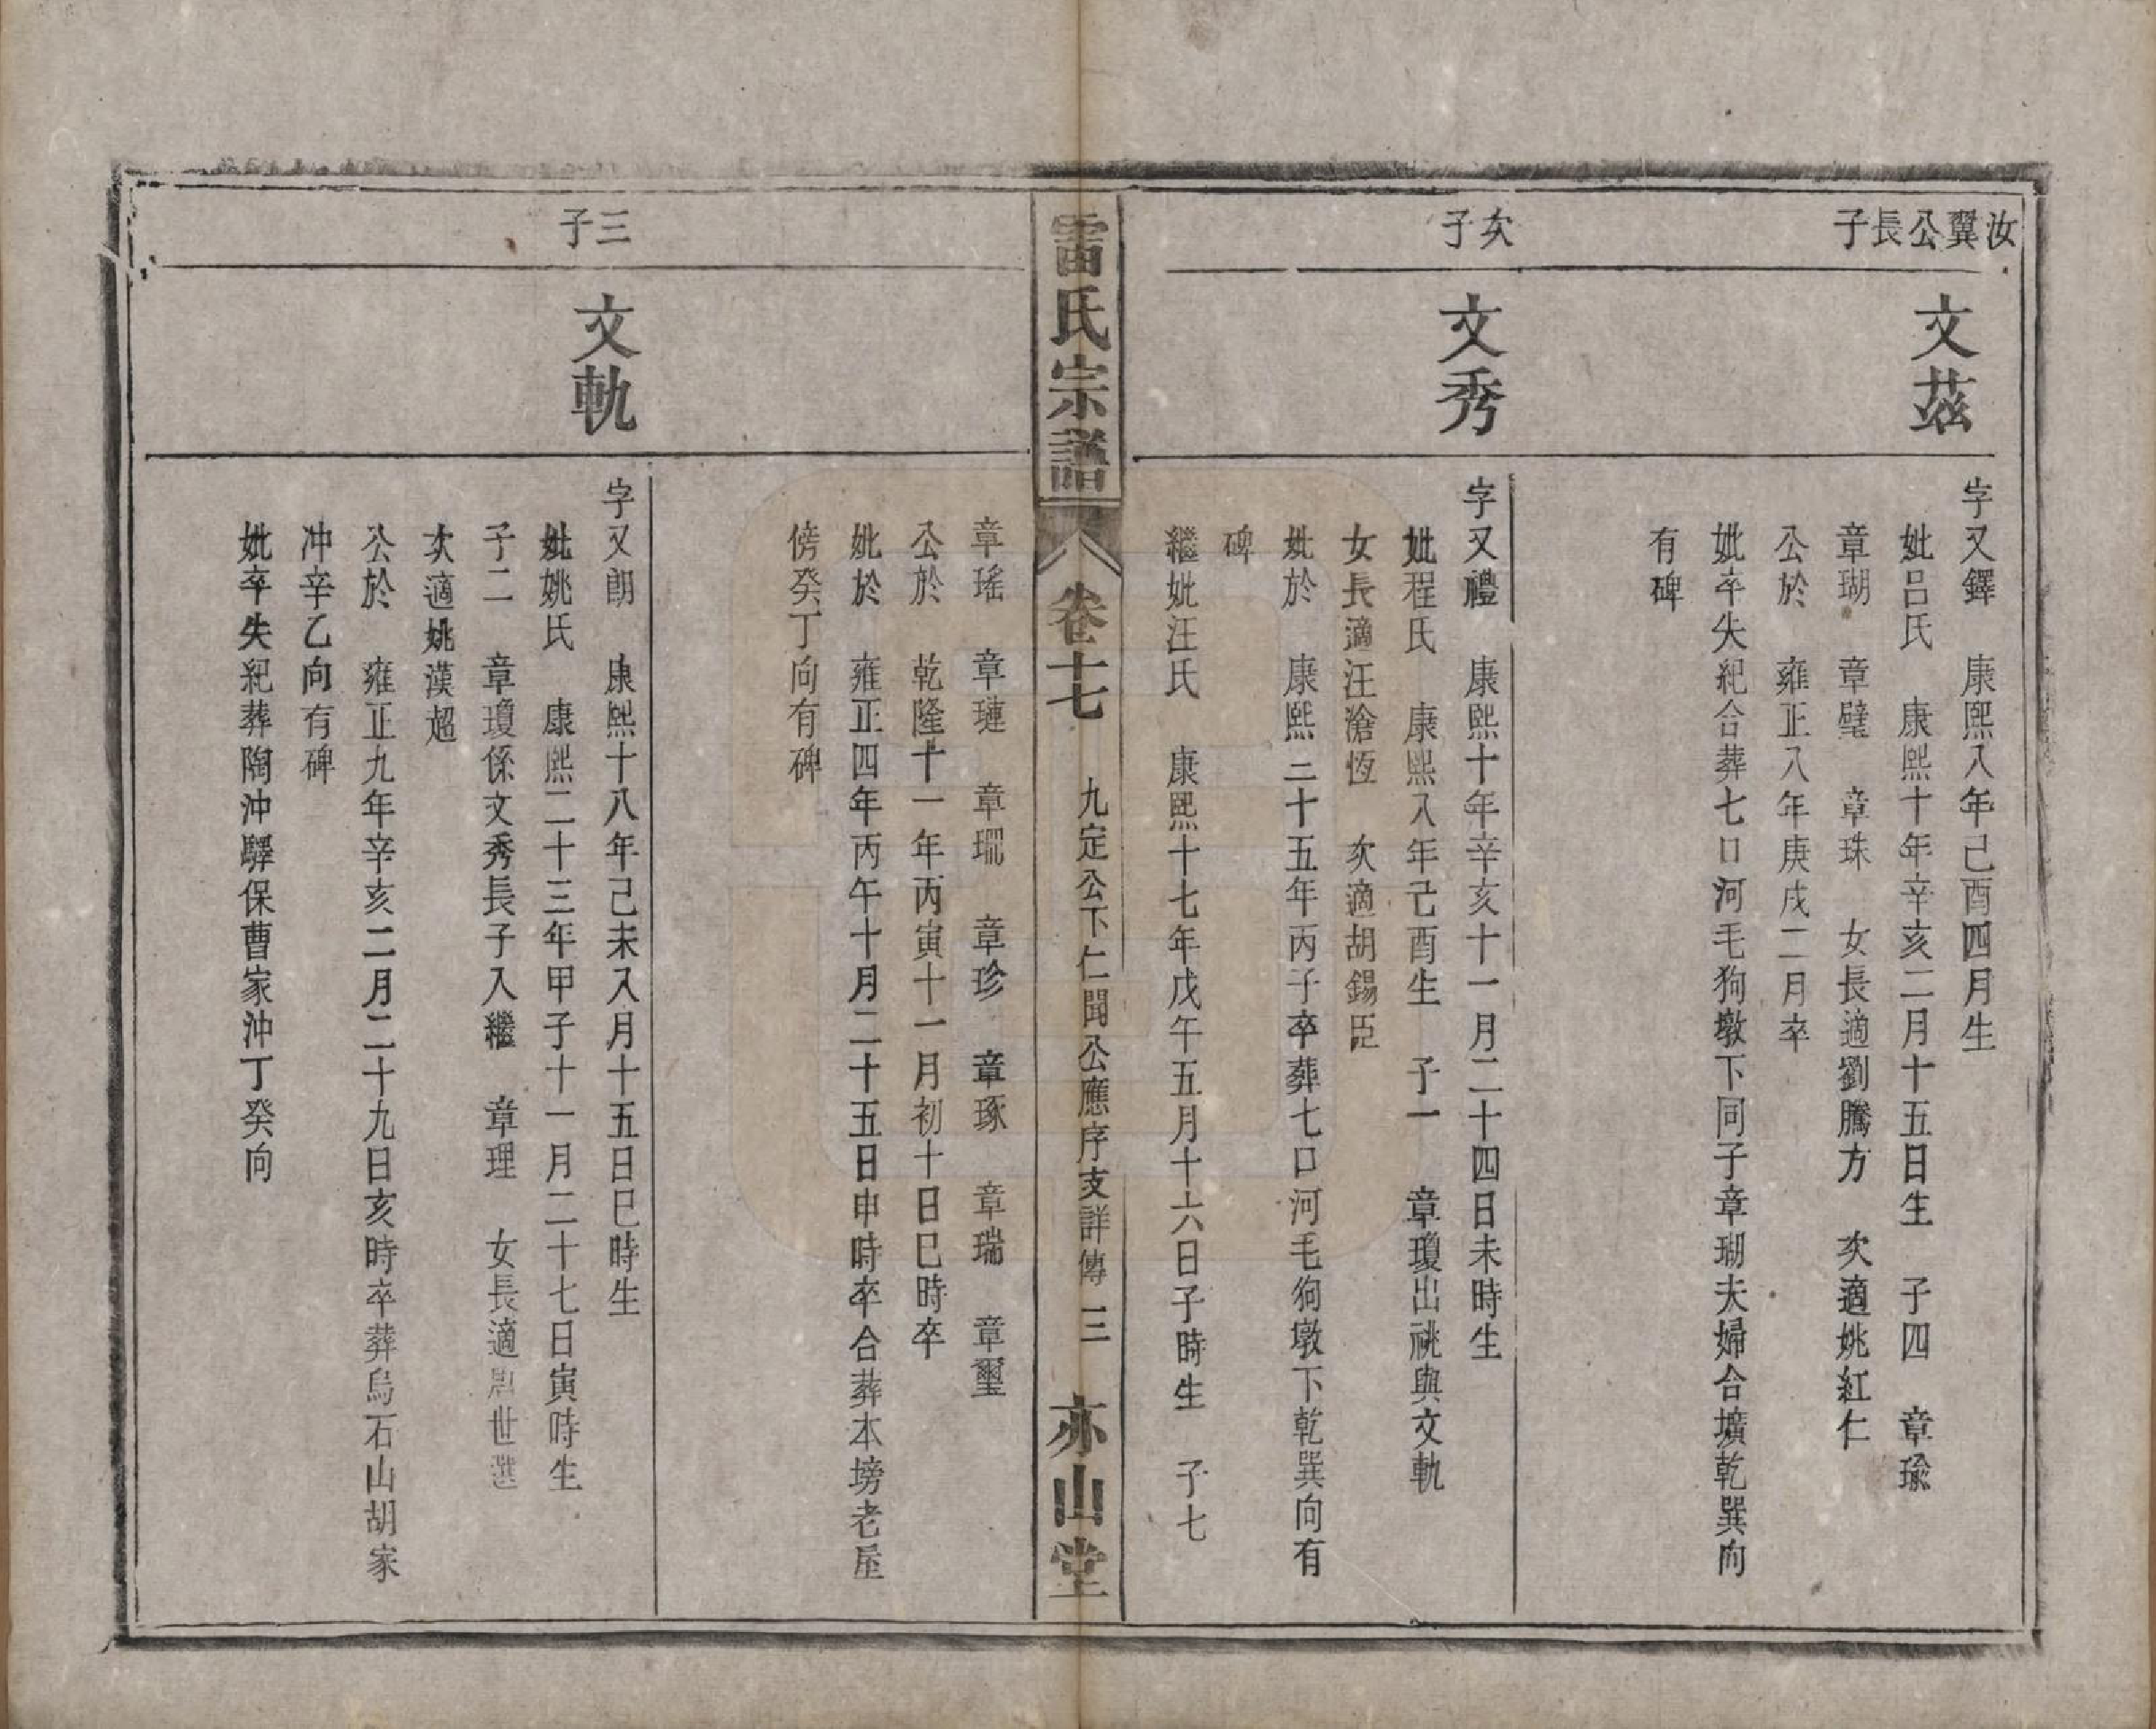 汝翼公長子
文茲
字又鐸　康熙八年己酉四月生
妣呂氏　康熙十年辛亥二月十五日生　子四　章瑜
章瑚　章璧　章珠　女長適劉騰方　次適姚紅仁
公於　雍正八年庚戌二月卒
妣卒失紀合葬七口河毛狗墩下同子章瑚夫婦合壙乾巽向
有碑
次子
文秀
字又禮　康熙十年辛亥十一月二十四日未時生
妣程氏　康熙八年己酉生　子一　章瓊出祧與文軌
女長適汪滄恆　次適胡錫臣
妣於　康熙三十五年丙子卒葬七口河毛狗墩下乾巽向有
碑
繼妣汪氏　康熙十七年戊午五月十六日子時生　子七
雷氏宗譜
卷十七
九定公下仁聞公應序支詳傳　三
亦山堂
章瑤　章璉　章珍　章琢　章瑞　章璽
公於　乾隆十一年丙寅十一月初十日巳時卒
妣於　雍正四年丙午十月二十五日申時卒合葬本塝老屋
傍癸丁向有碑
三子
文軌
字又朗　康熙十八年己未八月十五日巳時生
妣姚氏　康熙二十三年甲子十一月二十七日寅時生
子二　章瓊係文秀長子入繼　章理　女長適世選
次適姚漢超
公於　雍正九年辛亥二月二十九日亥時卒葬烏石山胡家
冲辛乙向有碑
妣卒失紀葬陶沖驛保曹家沖丁癸向